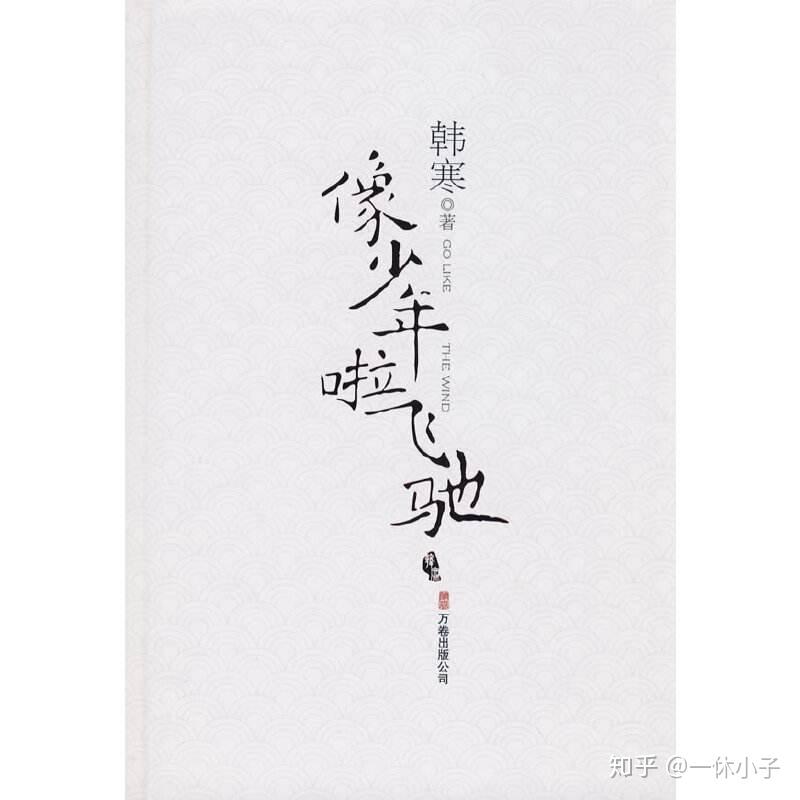 韩寒◎著
GO LIKE
THE WIND
像少年啦飞驰
万卷出版公司
知乎 @一休小子